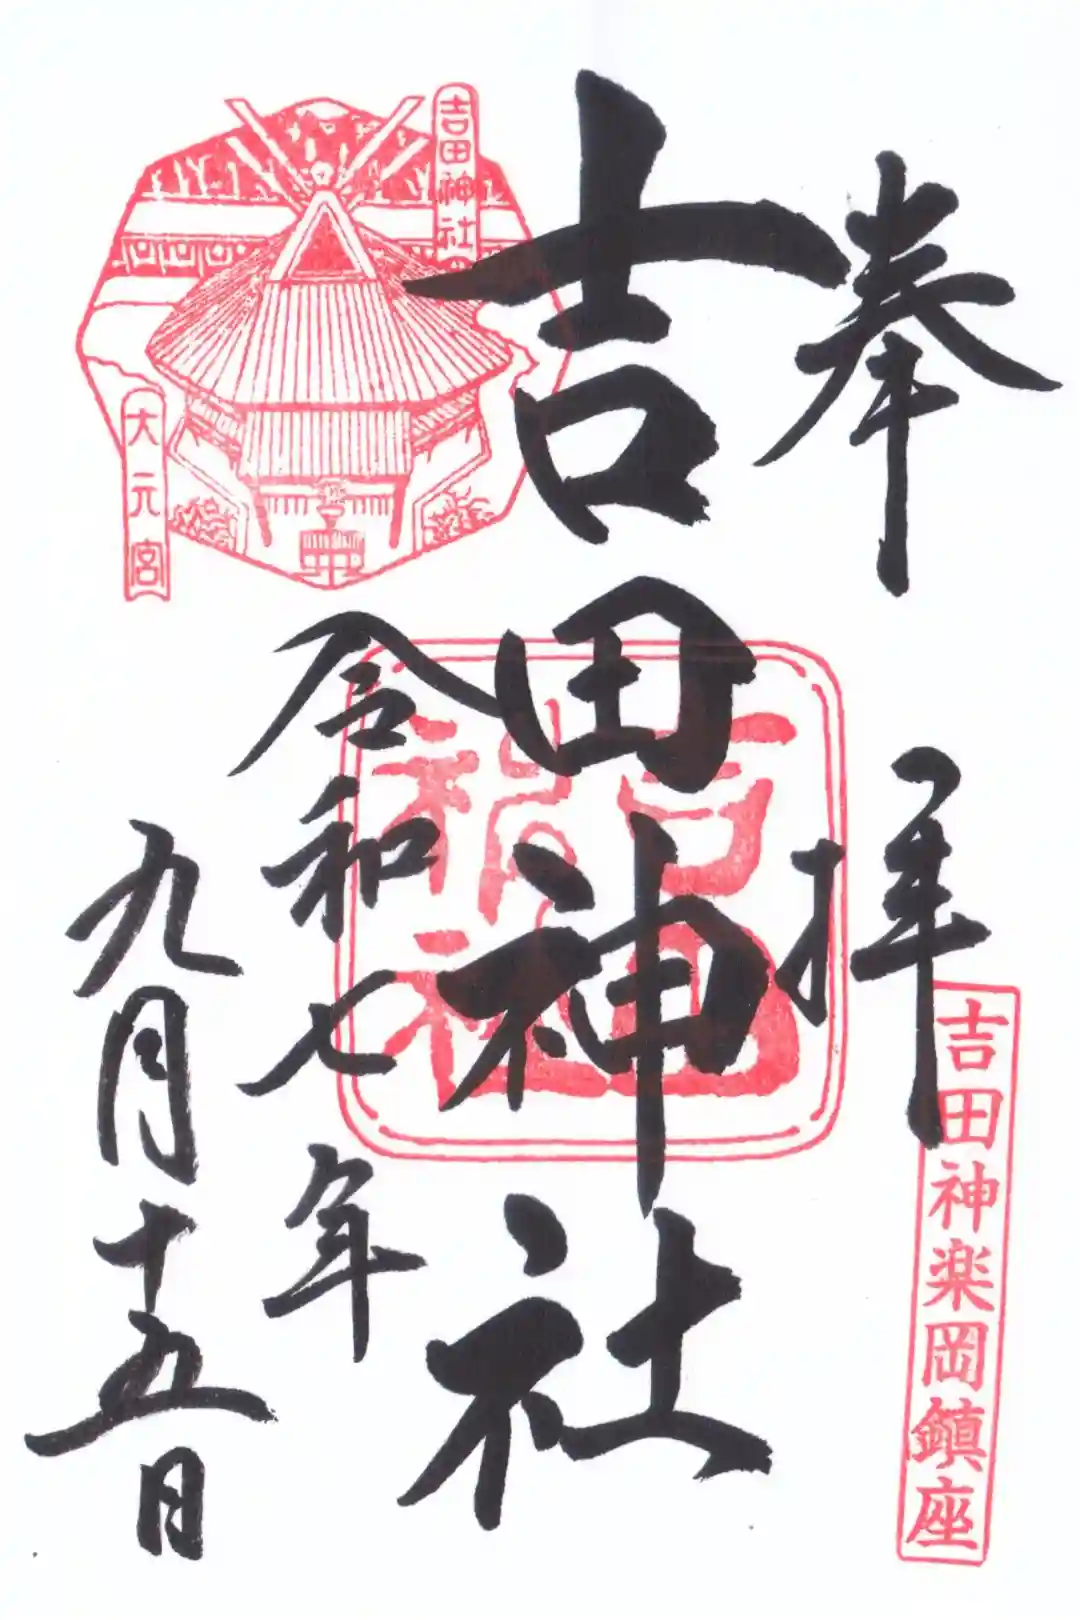 奉拝
吉田神楽岡鎮座
吉田神社
吉田神社
令和七年
九月十五日
吉田神社
大元宮